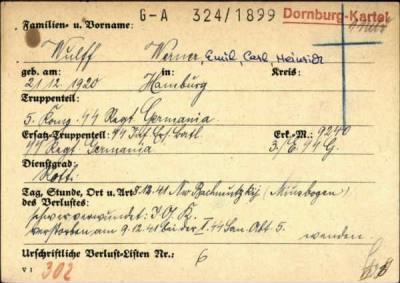 G-A 324/1899 Dornburg-Kartei
Familien- u. Vorname:
Wulff Werner, Emil Carl Heinrich
geb. am: in: Kreis:
21.12.1920 Hamburg
Truppenteil:
5. Komp. 44 Regt. Germania
Ersatz-Truppenteil: 44 Erk.-M.: 9240
44 Regt. Germania 3./E. 44 G.
Dienstgrad:
Rott.
Tag, Stunde, Ort u. Art 8.12.41 Nw. (Miusbogen)
des Verlustes:
schwer verwundet: I. G. K.
verstorben am 9.12.41 bei der 44 San. Abt. 5.
wenden.
Urschriftliche Verlust-Listen Nr.: 6
V 1 302